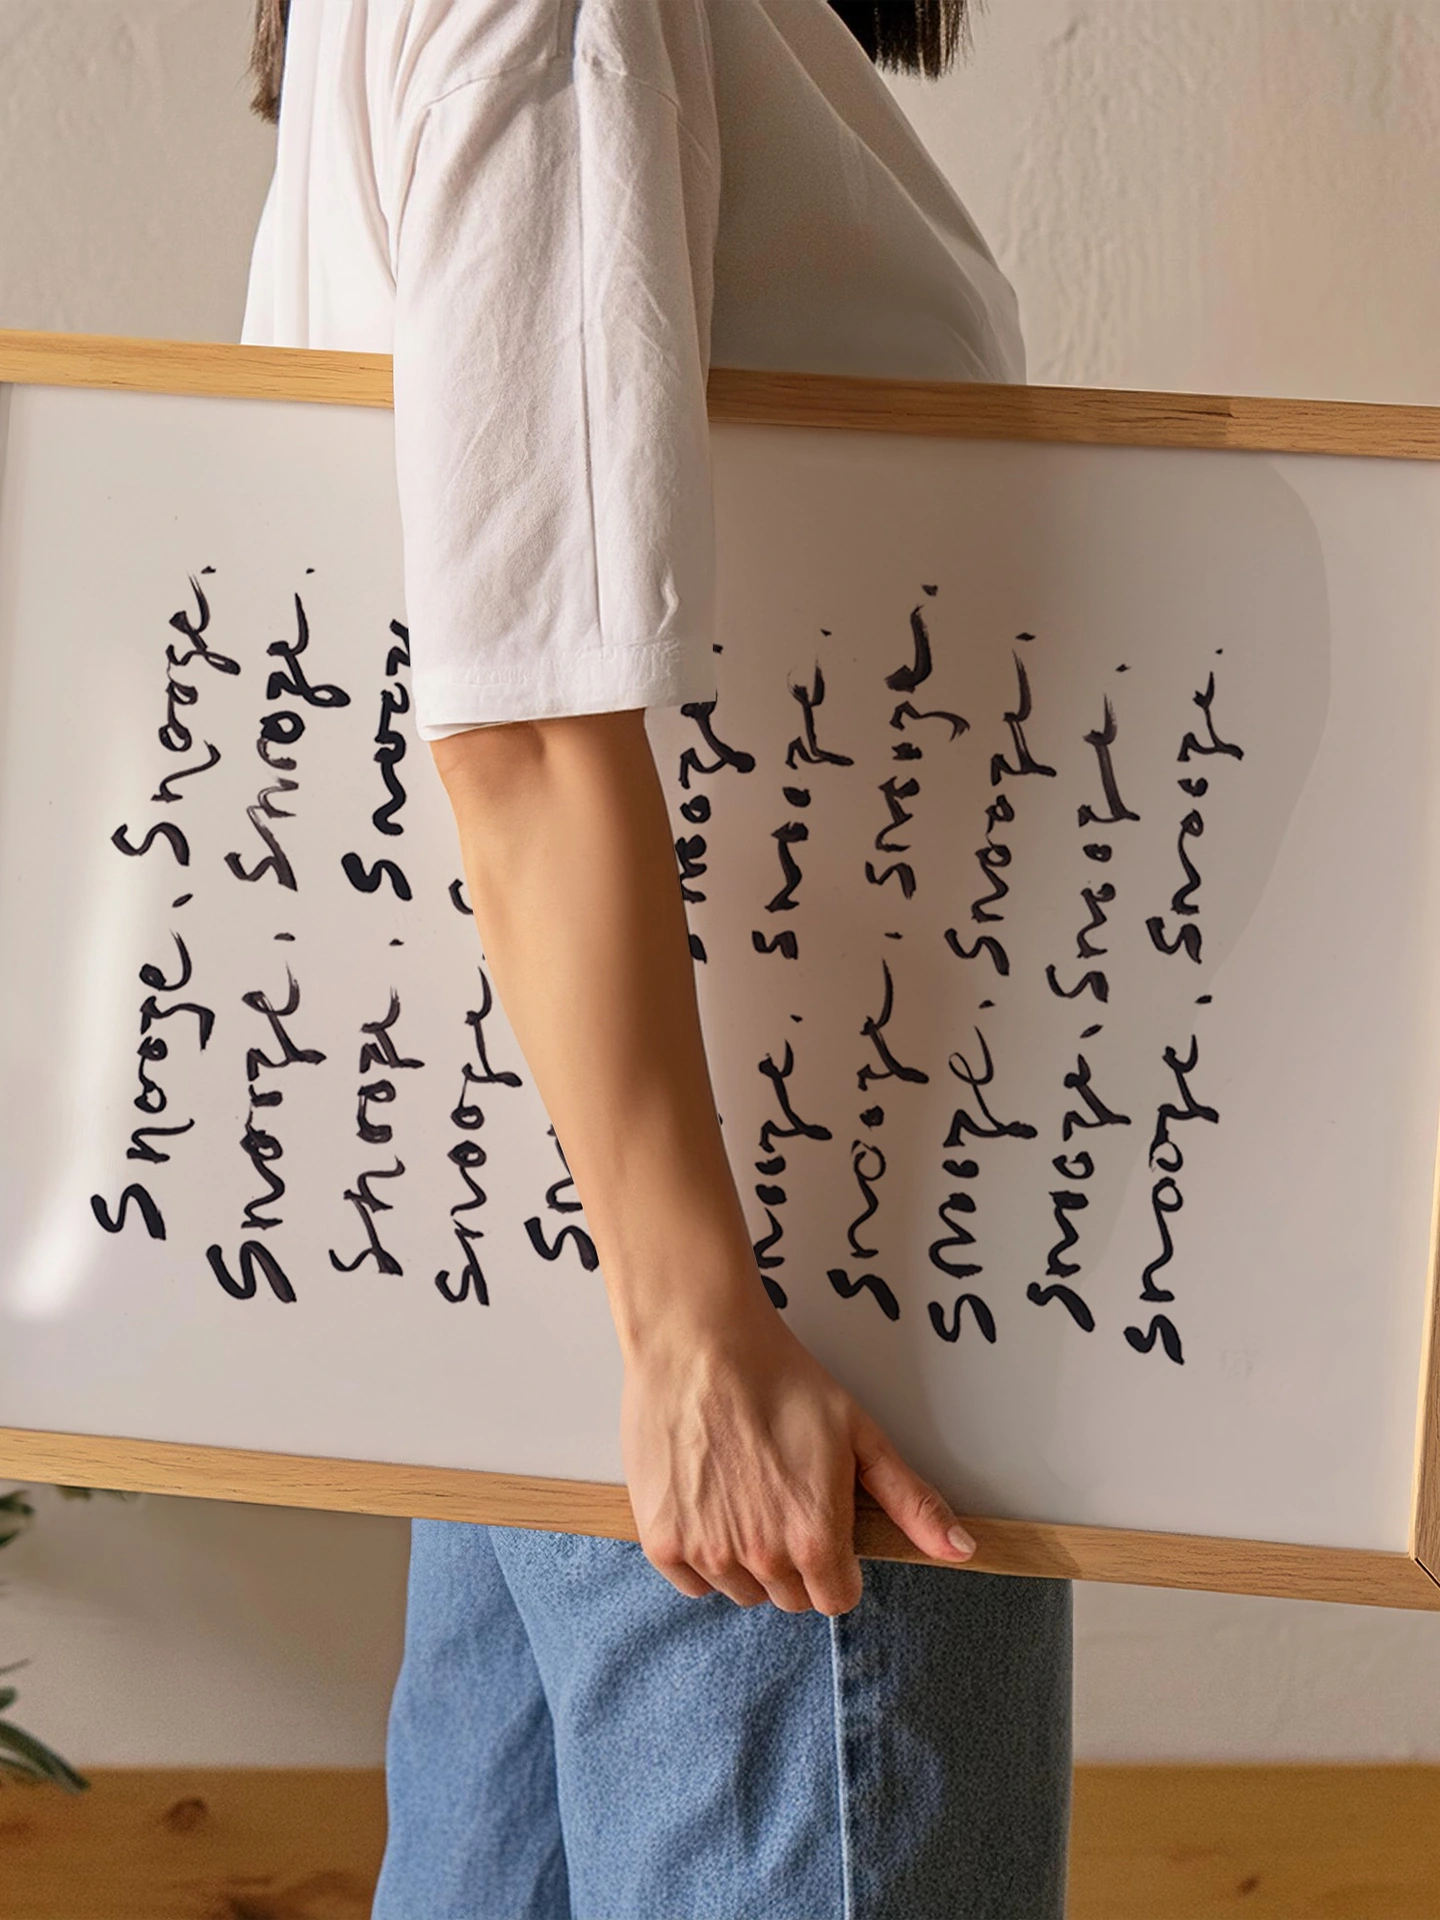 Snooze. Snooze.
Snooze. Snooze.
Snooze. Snooz
Snooze.
Sn
nooze.
Snooze. Snooze.
Snooze. Snooze.
Snooze. Snooze.
Snooze. Snooze.
Snooze. Snooze.